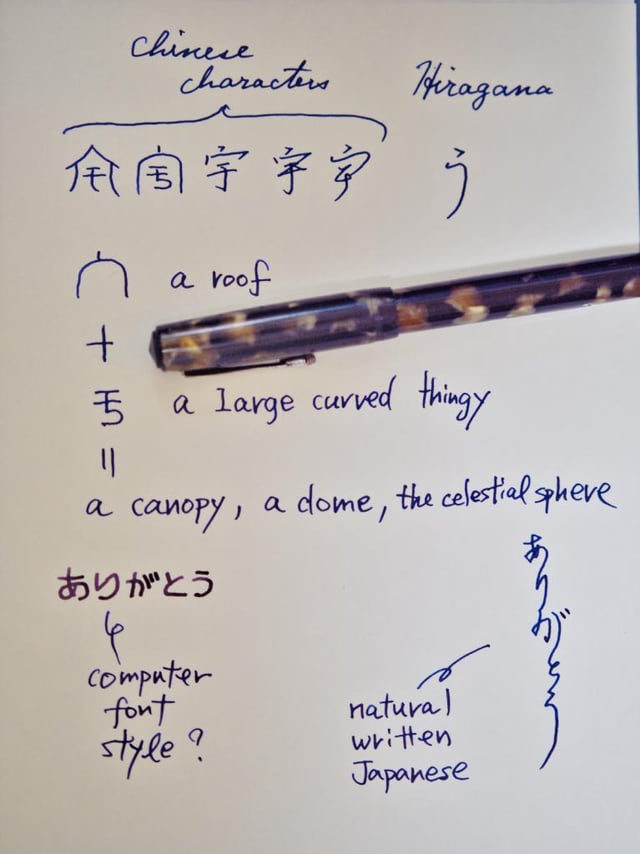 Chinese
characters
Hiragana
宇 宇 宇 宇 宇 う
宀 a roof
+
于 a large curved thingy
=
a canopy, a dome, the celestial sphere
ありがとう
computer
font
style?
ありがとう
natural
written
Japanese